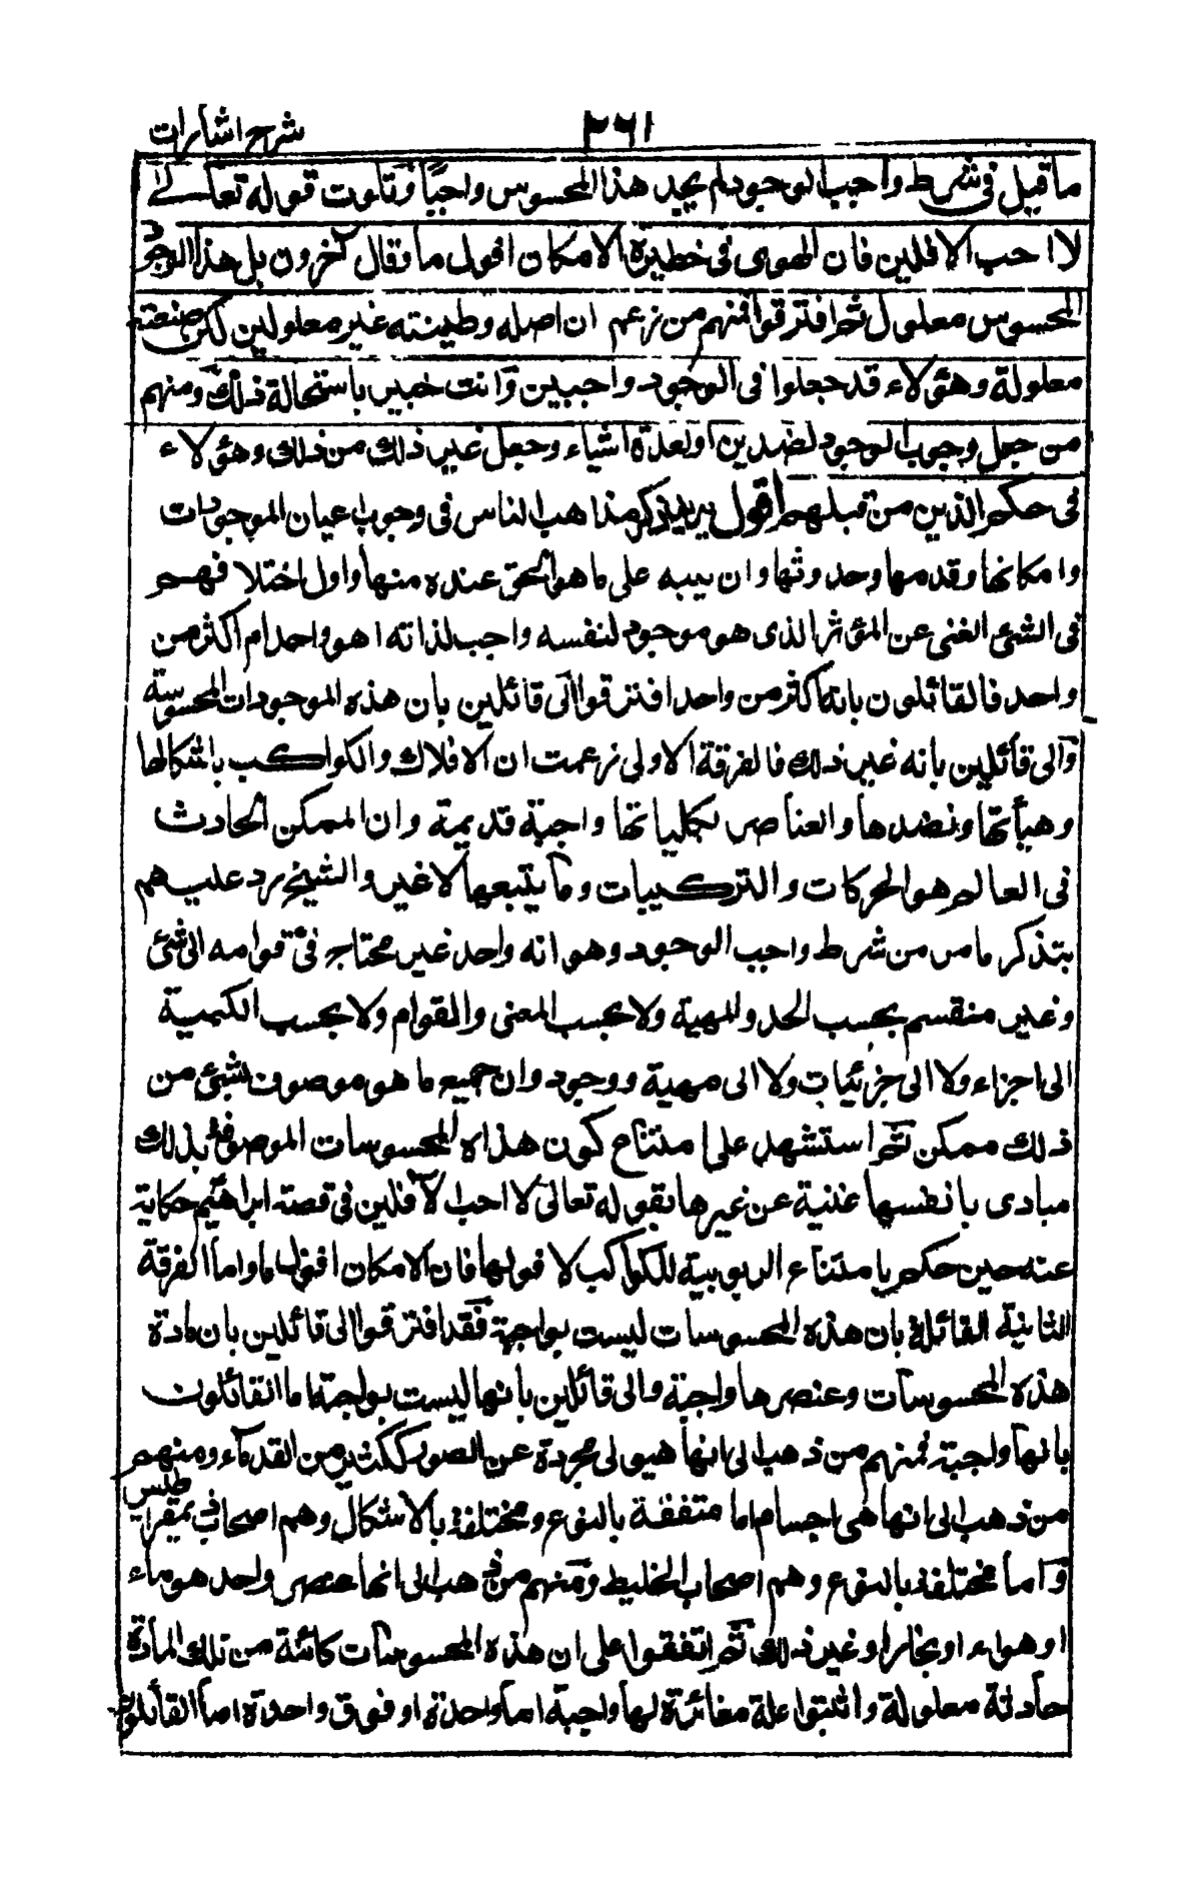 شرح اشارات
٢٦١
ما قيل فى شرط واجب الوجود لم يجد هذا المحسوس واجبًا وتلوت قوله تعالى
لا احب الافلين فان الهوى فى خطيرة الامكان افول ما وقال آخرون بل هذا الوجود
المحسوس معلول ثم افترقوا فمنهم من زعم ان اصله وطينته غير معلولين لكن صنعته
معلولة وهؤلاء قد جعلوا فى الوجود واجبين وانت خبير باستحالة ذلك ومنهم
من جعل وجوب الوجود لضدين او لعدة اشياء وجعل غير ذلك من ذلك وهؤلاء
فى حكم الذين من قبلهم اقول يريد ذكر مذاهب الناس فى وجوب اعيان الموجودات
وامكانها وقدمها وحدوثها وان يبيه على ما هو الحق عنده منها واول اختلافهم
فى الشئ الغنى عن المؤثر الذى هو موجود لنفسه واجب لذاته اهو واحد ام اكثر من
واحد فالقائلون بانه اكثر من واحد افترقوا الى قائلين بان هذه الموجودات المحسوسة
والى قائلين بانه غير ذلك فالفرقة الاولى زعمت ان الافلاك والكواكب باشكالها
وهيأتها ونضدها والعناصر بكلياتها واجبة قديمة وان الممكن الحادث
فى العالم هو الحركات والتركيبات وما يتبعها لا غير والشيخ رد عليهم
بتذكر ما مر من شرط واجب الوجود وهو انه واحد غير محتاج فى قوامه الى شئ
وغير منقسم بحسب الحد والمهية ولا بحسب المعنى والقوام ولا بحسب الكمية
الى اجزاء ولا الى جزئيات ولا الى مهية ووجود وان جميع ما هو موصوف بشئ من
ذلك ممكن ثم استشهد على امتناع كون هذاه المحسوسات الموصوفة بذلك
مبادى بانفسها غنية عن غيرها بقوله تعالى لا احب الآفلين فى قصة ابراهيم حكاية
عنه حين حكم بامتناع الربوبية للكواكب لافولها فان الامكان افول ما واما الفرقة
الثانية القائلة بان هذه المحسوسات ليست بواجبة فقد افترقوا الى قائلين بان مادة
هذه المحسوسات وعنصرها واجبة والى قائلين بانها ليست بواجبة اما القائلون
بانها واجبة فمنهم من ذهب الى انها هيولى مجردة عن الصور ككثير من القدماء ومنهم
من ذهب الى انها هى اجسام اما متفقة بالنوع ومختلفة بالاشكال وهم اصحاب ذيمقراطيس
واما مختلفة بالنوع وهم اصحاب الخليط ومنهم من ذهب الى انها عنصر واحد هو ماء
او هواء او بخار او غير ذلك ثم اتفقوا على ان هذه المحسوسات كائنة من تلك المادة
حادثة معلولة واثبتوا علة مغائرة لها واجبة اما واحدة او فوق واحدة اما القائلون